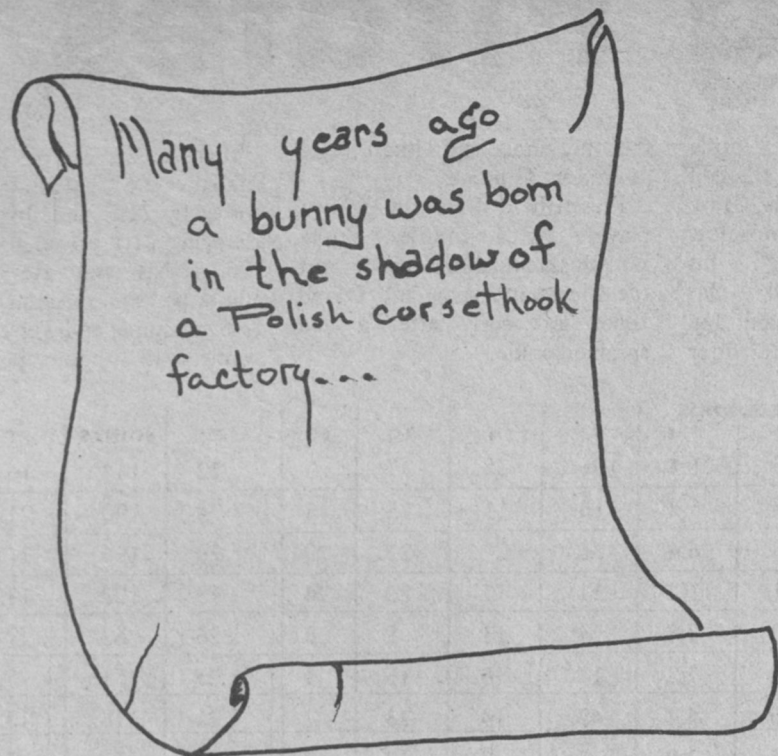 Many years ago
a bunny was born
in the shadow of
a Polish corsethook
factory...